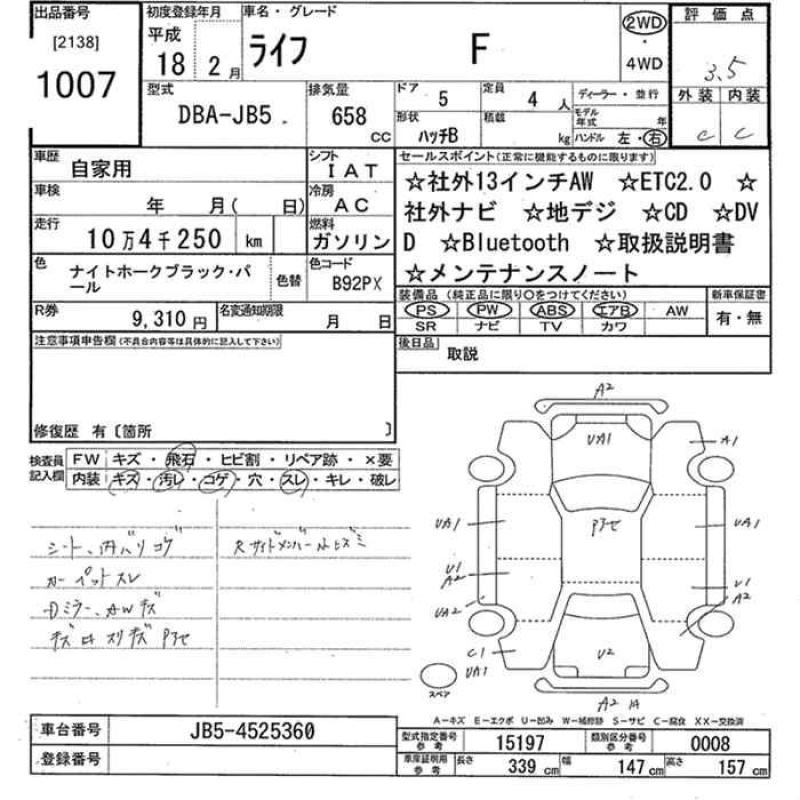 出品番号 初度登録年月 車名・グレード 2WD 評価点
[2138] 平成 ・
1007 18 2月 ライフ F 4WD 3.5
型式 排気量 ドア 5 定員 4人 ディーラー・並行 外装 内装
DBA-JB5 658 cc 形状 ハッチB 積載 kg モデル年式 年 C C
ハンドル 左・右
車歴 自家用 シフト IAT セールスポイント(正常に機能するものに限ります)
車検 年 月( 日) 冷房 AC ☆社外13インチAW ☆ETC2.0 ☆
走行 10万4千250 km 燃料 ガソリン 社外ナビ ☆地デジ ☆CD ☆DV
色 ナイトホークブラック・パ 色替 色コード D ☆Bluetooth ☆取扱説明書
ール B92PX ☆メンテナンスノート
R券 9,310円 名変通知期限 月 日 装備品(純正品に限り○をつけてください) 新車保証書
PS PW ABS エアB AW 有・無
SR ナビ TV カワ
注意事項申告欄(不具合内容等は具体的に記入して下さい) 後日品 取説
修復歴 有〔箇所 〕
検査員記入欄 FW キズ・飛石・ヒビ割・リペア跡・×要
内装 キズ・汚レ・コゲ・穴・スレ・キレ・破レ
シート、内バリコゲ Rサイドメンバー小ヒズミ
カーペットスレ
Dミラー、AWキズ
キズ凹スリキズアワセ
A2
UA1 A1
UA1 アワセ UA1
U1 U1
A2 A2
UA2
C1 U2
UA1
スペア
A2
A-キズ E-エクボ U-凹み W-補修跡 S-サビ C-腐食 XX-交換済
車台番号 JB5-4525360 型式指定番号 参考 15197 類別区分番号 参考 0008
登録番号 車庫証明用 参考 長さ 339cm 幅 147cm 高さ 157cm